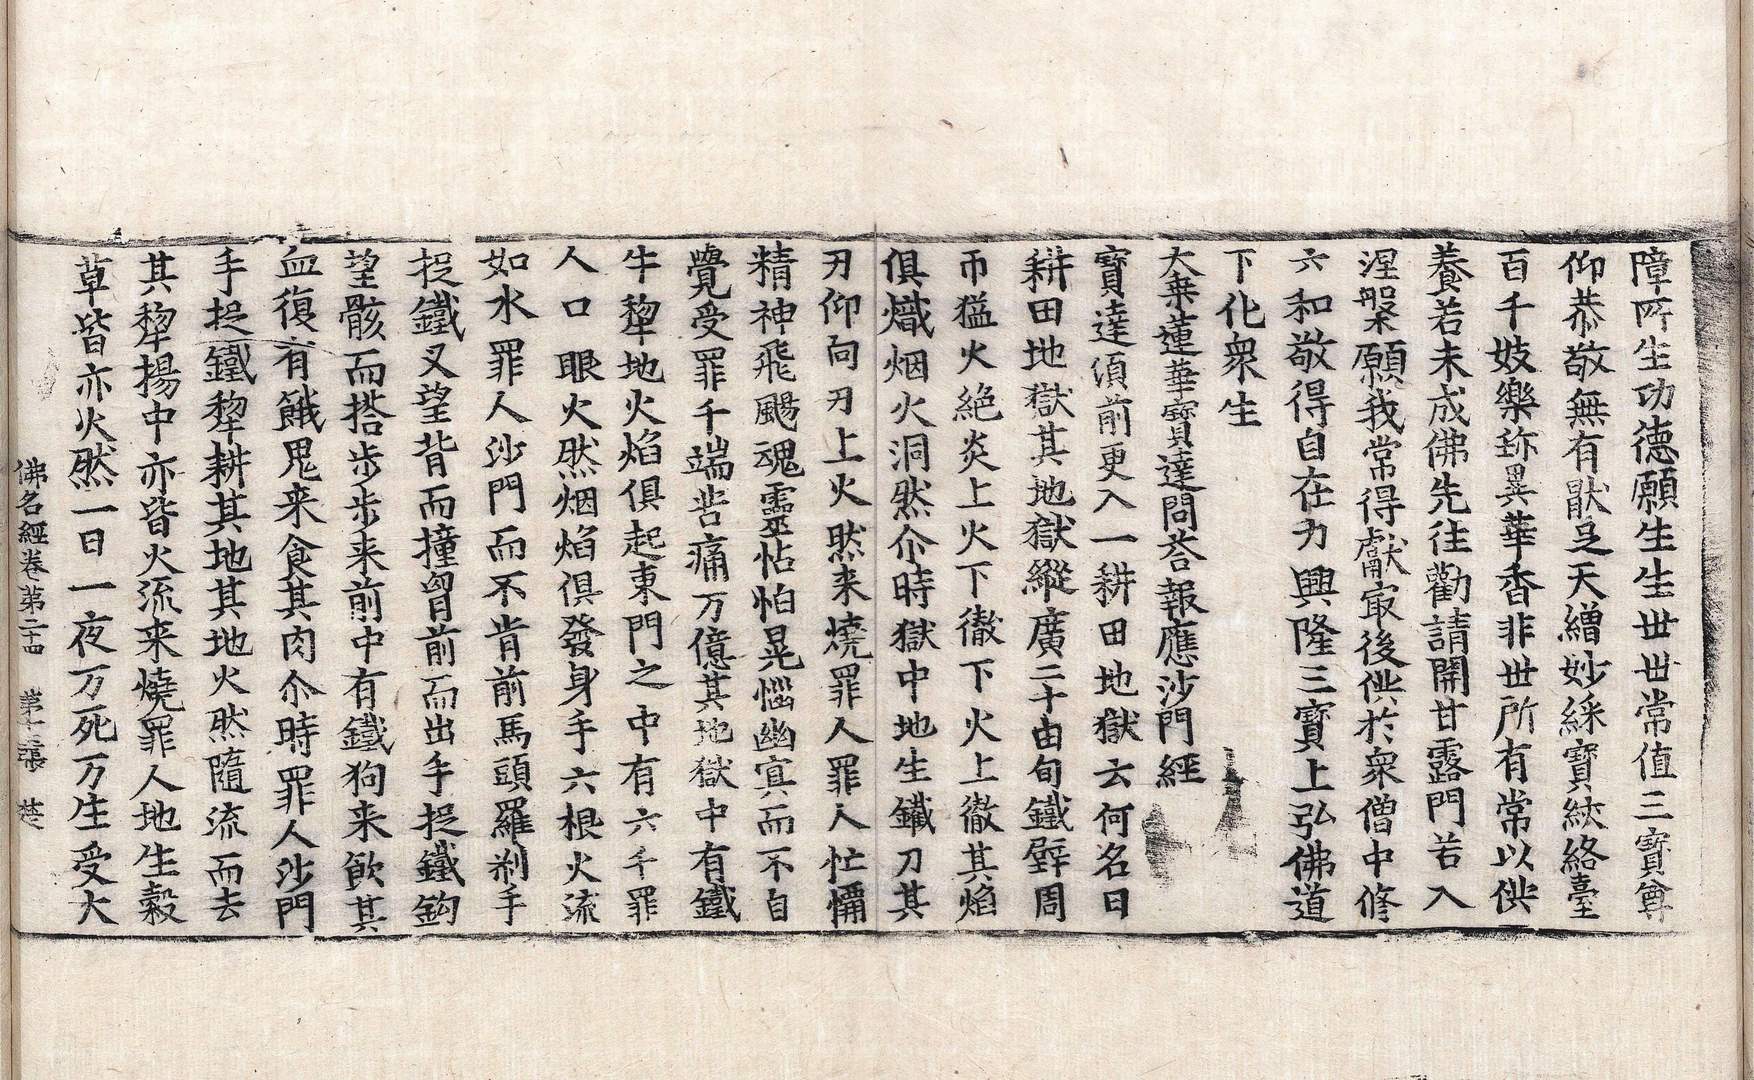 障所生功德願生生世世常值三寶尊
仰恭敬無有猒乏天繒妙綵寶絞絡臺
百千妓樂珎異華香非世所有常以供
養若未成佛先往勸請開甘露門若入
涅槃願我常得獻㝡後供於衆僧中修
六和敬得自在力興隆三寶上弘佛道
下化衆生
大乗蓮華寶達問荅報應沙門經
寶達湏前更入一耕田地獄云何名曰
耕田地獄其地獄縱廣二十由旬鐵壁周
帀猛火絶炎上火下徹下火上徹其焰
俱熾烟火洞然尒時獄中地生鐵刀其
刃仰向刃上火然来燒罪人罪人忙懎
精神飛颺魂靈怗怕晃惱幽㝠而不自
覺受罪千端苦痛万億其地獄中有鐵
牛犂地火焰俱起東門之中有六千罪
人口眼火然烟焰俱發身手六根火流
如水罪人沙門而不肯前馬頭羅刹手
捉鐵叉望背而撞胷前而出手捉鐵鈎
望骸而搭步步来前中有鐵狗来飲其
血復有餓鬼来食其肉尒時罪人沙門
手捉鐵犂耕其地其地火然隨流而去
其犂揚中亦皆火流来燒罪人地生穀
草皆亦火然一日一夜万死万生受大
佛名經卷第二十四 第十二張 楚